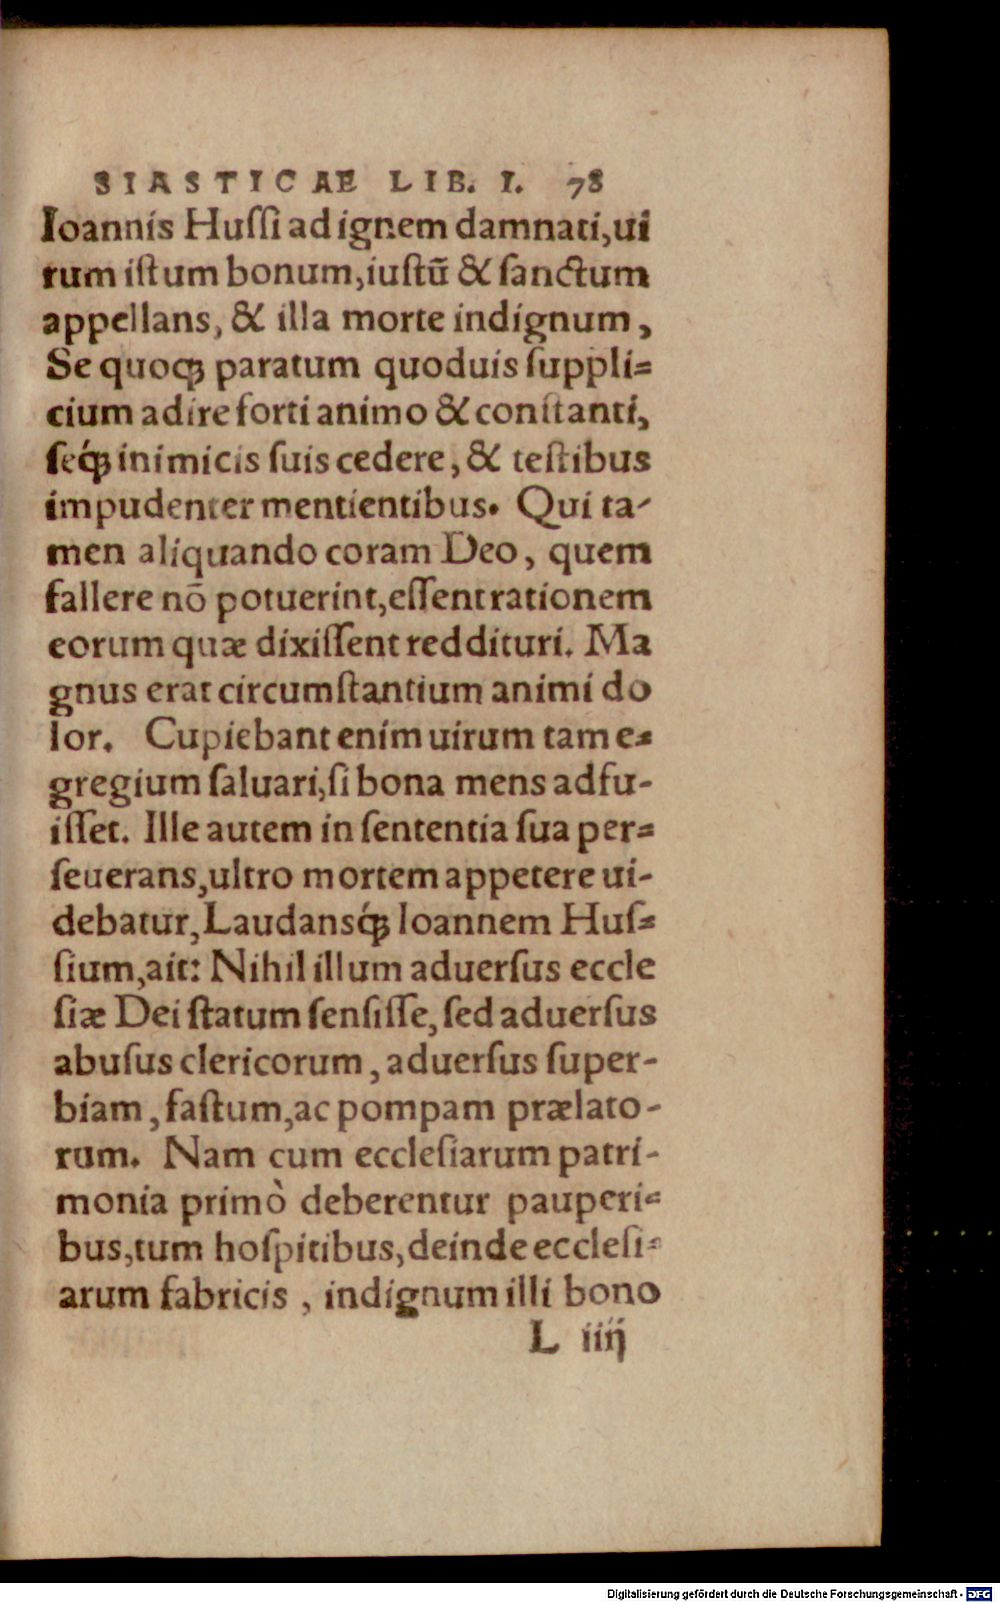 SIASTICAE LIB. I. 78
Ioannis Hussi ad ignem damnati, ui
rum istum bonum, iustū & sanctum
appellans, & illa morte indignum,
Se quoqꝫ paratum quoduis suppli=
cium adire forti animo & constanti,
seq́ꝫ inimicis suis cedere, & testibus
impudenter mentientibus. Qui ta-
men aliquando coram Deo, quem
fallere nō potuerint, essent rationem
eorum quæ dixissent reddituri. Ma
gnus erat circumstantium animi do
lor. Cupiebant enim uirum tam e=
gregium saluari, si bona mens adfu-
isset. Ille autem in sententia sua per=
seuerans, ultro mortem appetere ui-
debatur, Laudansq́ꝫ Ioannem Hus=
sium, ait: Nihil illum aduersus eccle
siæ Dei statum sensisse, sed aduersus
abusus clericorum, aduersus super-
biam, fastum, ac pompam prælato-
rum. Nam cum ecclesiarum patri-
monia primò deberentur pauperi=
bus, tum hospitibus, deinde ecclesi=
arum fabricis, indignum illi bono
L iiij
Digitalisierung gefördert durch die Deutsche Forschungsgemeinschaft - DFG